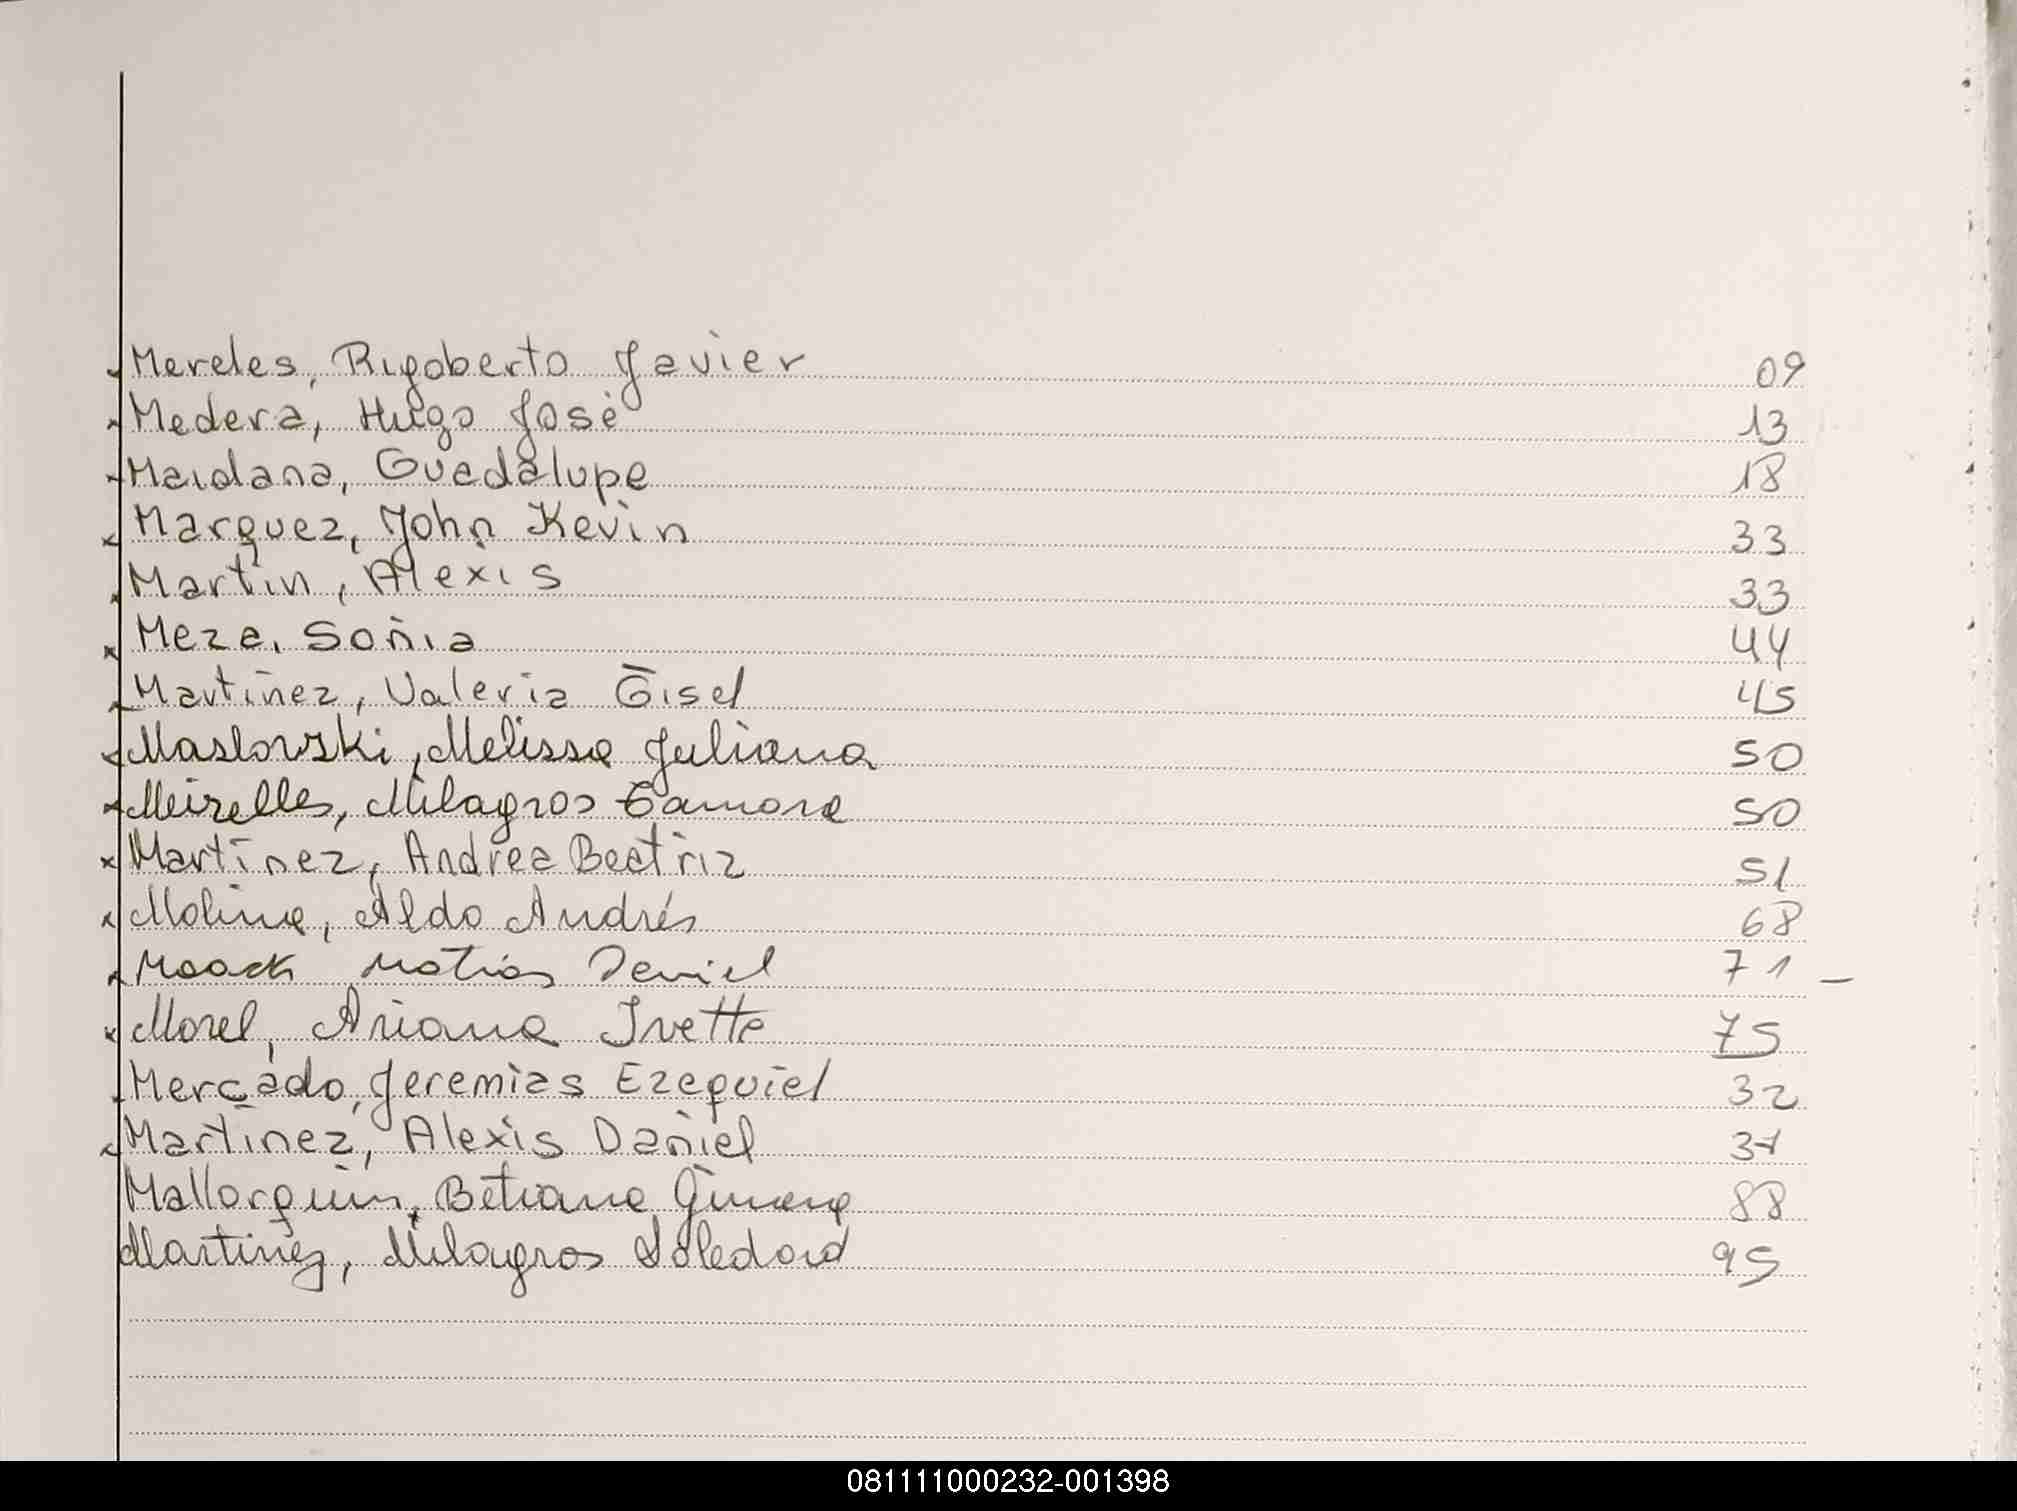 Mereles, Rigoberto Javier 09
Medera, Hugo José 13
Maidana, Guadalupe 18
Marquez, John Kevin 33
Martin, Alexis 33
Meza, Sonia 44
Martinez, Valeria Gisel 45
Maslowski, Melissa Juliana 50
Meirelles, Milagros Tamara 50
Martinez, Andrea Beatriz 51
Molina, Aldo Andrés 68
Maack Matias Daniel 71 –
Morel, Ariana Ivette 75
Mercado, Jeremias Ezequiel 32
Martinez, Alexis Daniel 37
Mallorquin, Betiana Gimena 88
Martinez, Milagros Soledad 95
081111000232-001398